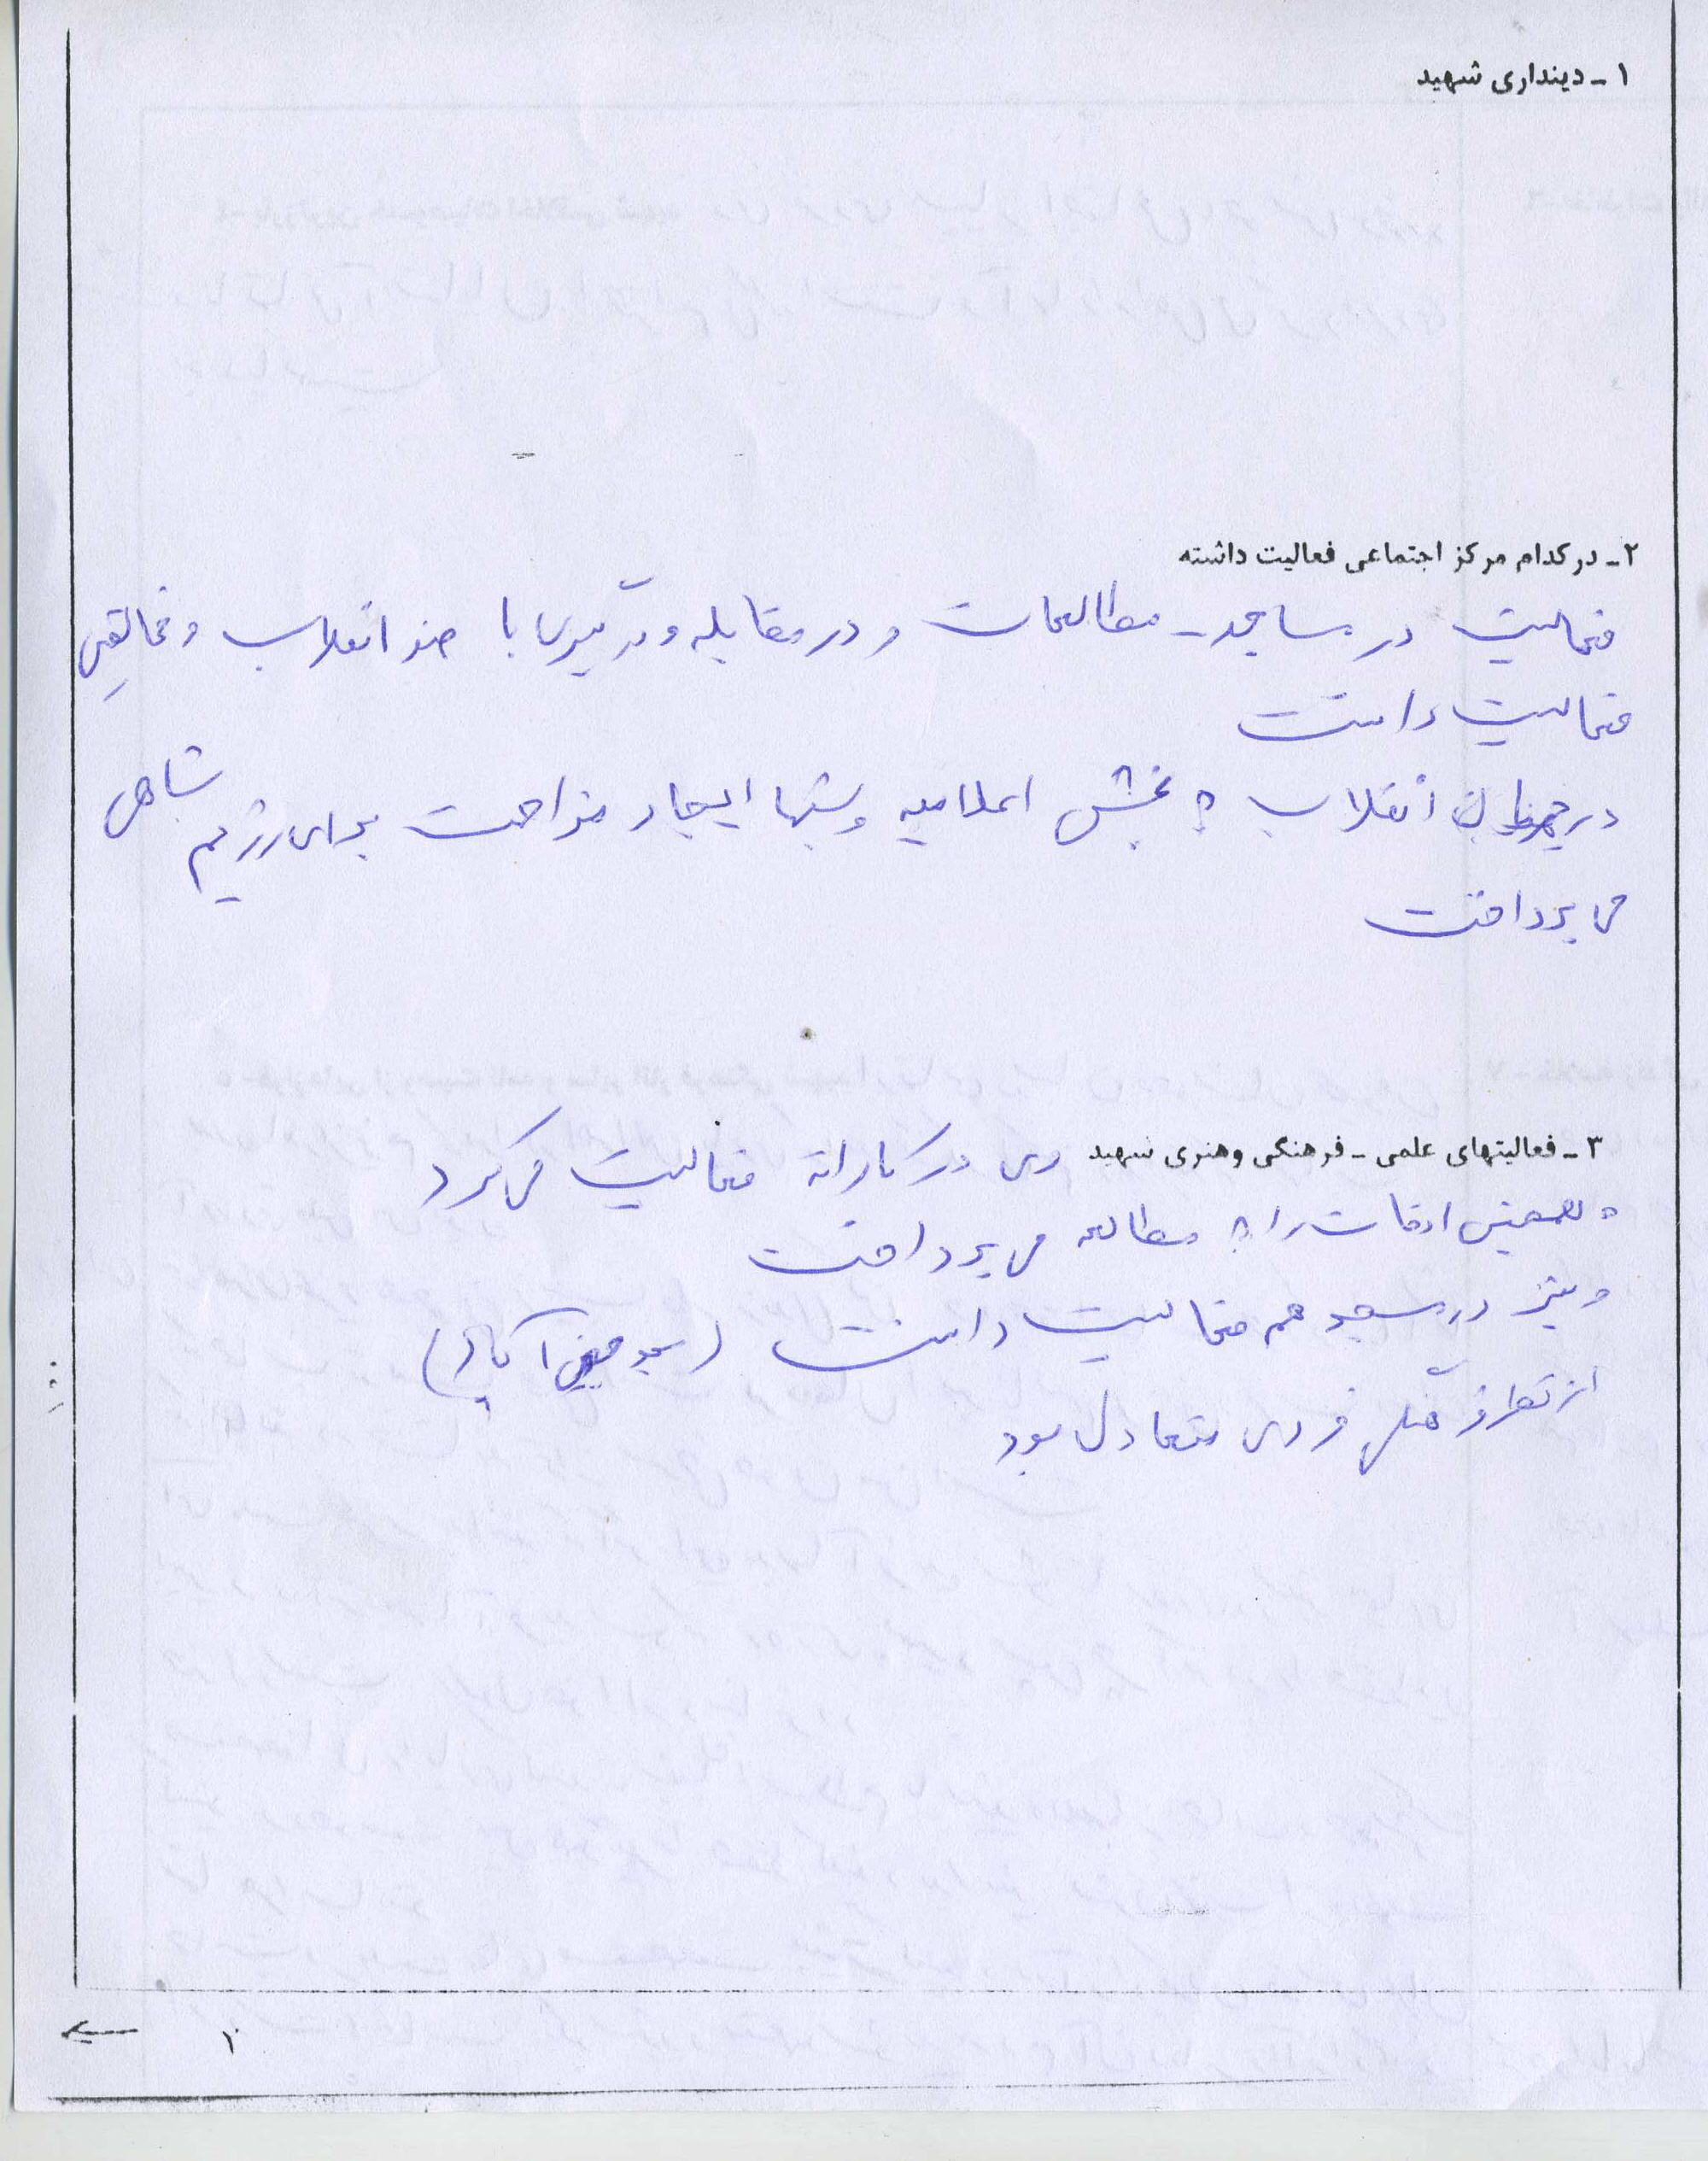 ۱ - دینداری شهید
۲ - در کدام مرکز اجتماعی فعالیت داشته
فعالیت در مساجد - مطالعات و در مقابله و درگیری با ضد انقلاب و مخالفین
فعالیت داشت
در جریان انقلاب به پخش اعلامیه و شبها ایجاد مزاحمت برای رژیم شاهی
می پرداخت
۳ - فعالیتهای علمی - فرهنگی و هنری شهید وی در کاراته فعالیت می کرد
و بعضی اوقات را به مطالعه می پرداخت
و نیز در مسجد هم فعالیت داشت (مسجد
از نظر فردی متعادل بود
۱